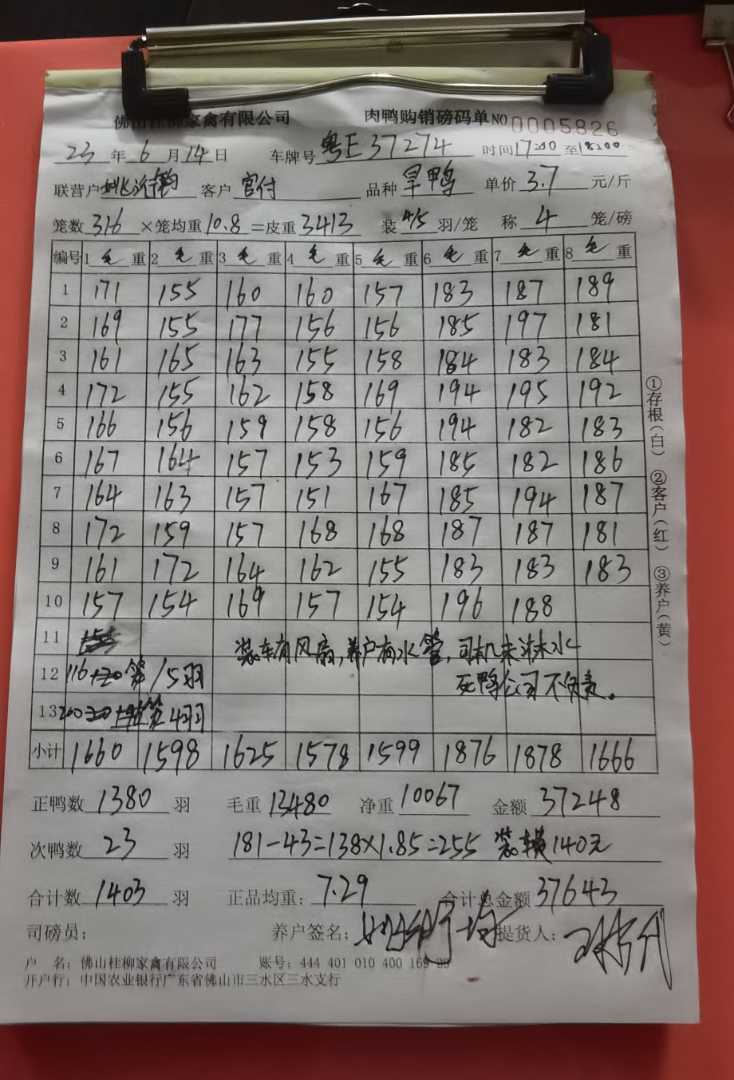 佛山桂柳家禽有限公司 肉鸭购销磅码单 NO 0005826
23年6月14日 车牌号 粤E37274 时间17:00至18:00
联营户 客户 官付 品种 旱鸭 单价 3.7 元/斤
笼数 316 ×笼均重 10.8 =皮重 3413 装 4/5 羽/笼 称 4 笼/磅
编号 1 毛 重 2 毛 重 3 毛 重 4 毛 重 5 毛 重 6 毛 重 7 毛 重 8 毛 重
1 171 155 160 160 157 183 187 189
2 169 155 177 156 156 185 197 181
3 161 165 163 155 158 184 183 184
4 172 155 162 158 169 194 195 192
5 166 156 159 158 156 194 182 183
6 167 164 157 153 159 185 182 186
7 164 163 157 151 167 185 194 187
8 172 159 157 168 168 187 187 181
9 161 172 164 162 155 183 183 183
10 157 154 169 157 154 196 188
11 装车有风扇,养户有水管,司机未淋水
12 116 笼/5羽 死鸭公司不负责。
13 200 笼4羽
小计 1660 1598 1625 1578 1599 1876 1878 1666
正鸭数 1380 羽 毛重 13480 净重 10067 金额 37248
次鸭数 23 羽 181-43=138×1.85=255 装 140元
合计数 1403 羽 正品均重: 7.29 合计总金额 37643
司磅员: 养户签名: 提货人:
户 名: 佛山桂柳家禽有限公司 账号: 444 401 010 400 169
开户行: 中国农业银行广东省佛山市三水区三水支行
①存根(白) ②客户(红) ③养户(黄)